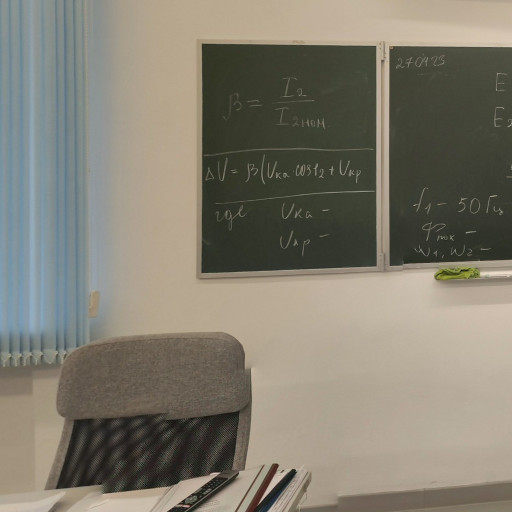 β = I₂ / I₂ном
ΔV = β(Uка cosφ₂ + Uкр
где Uка –
Uкр –
27.04.23
E
E₂
f₁ – 50 Гц
Фmax –
w₁, w₂ –